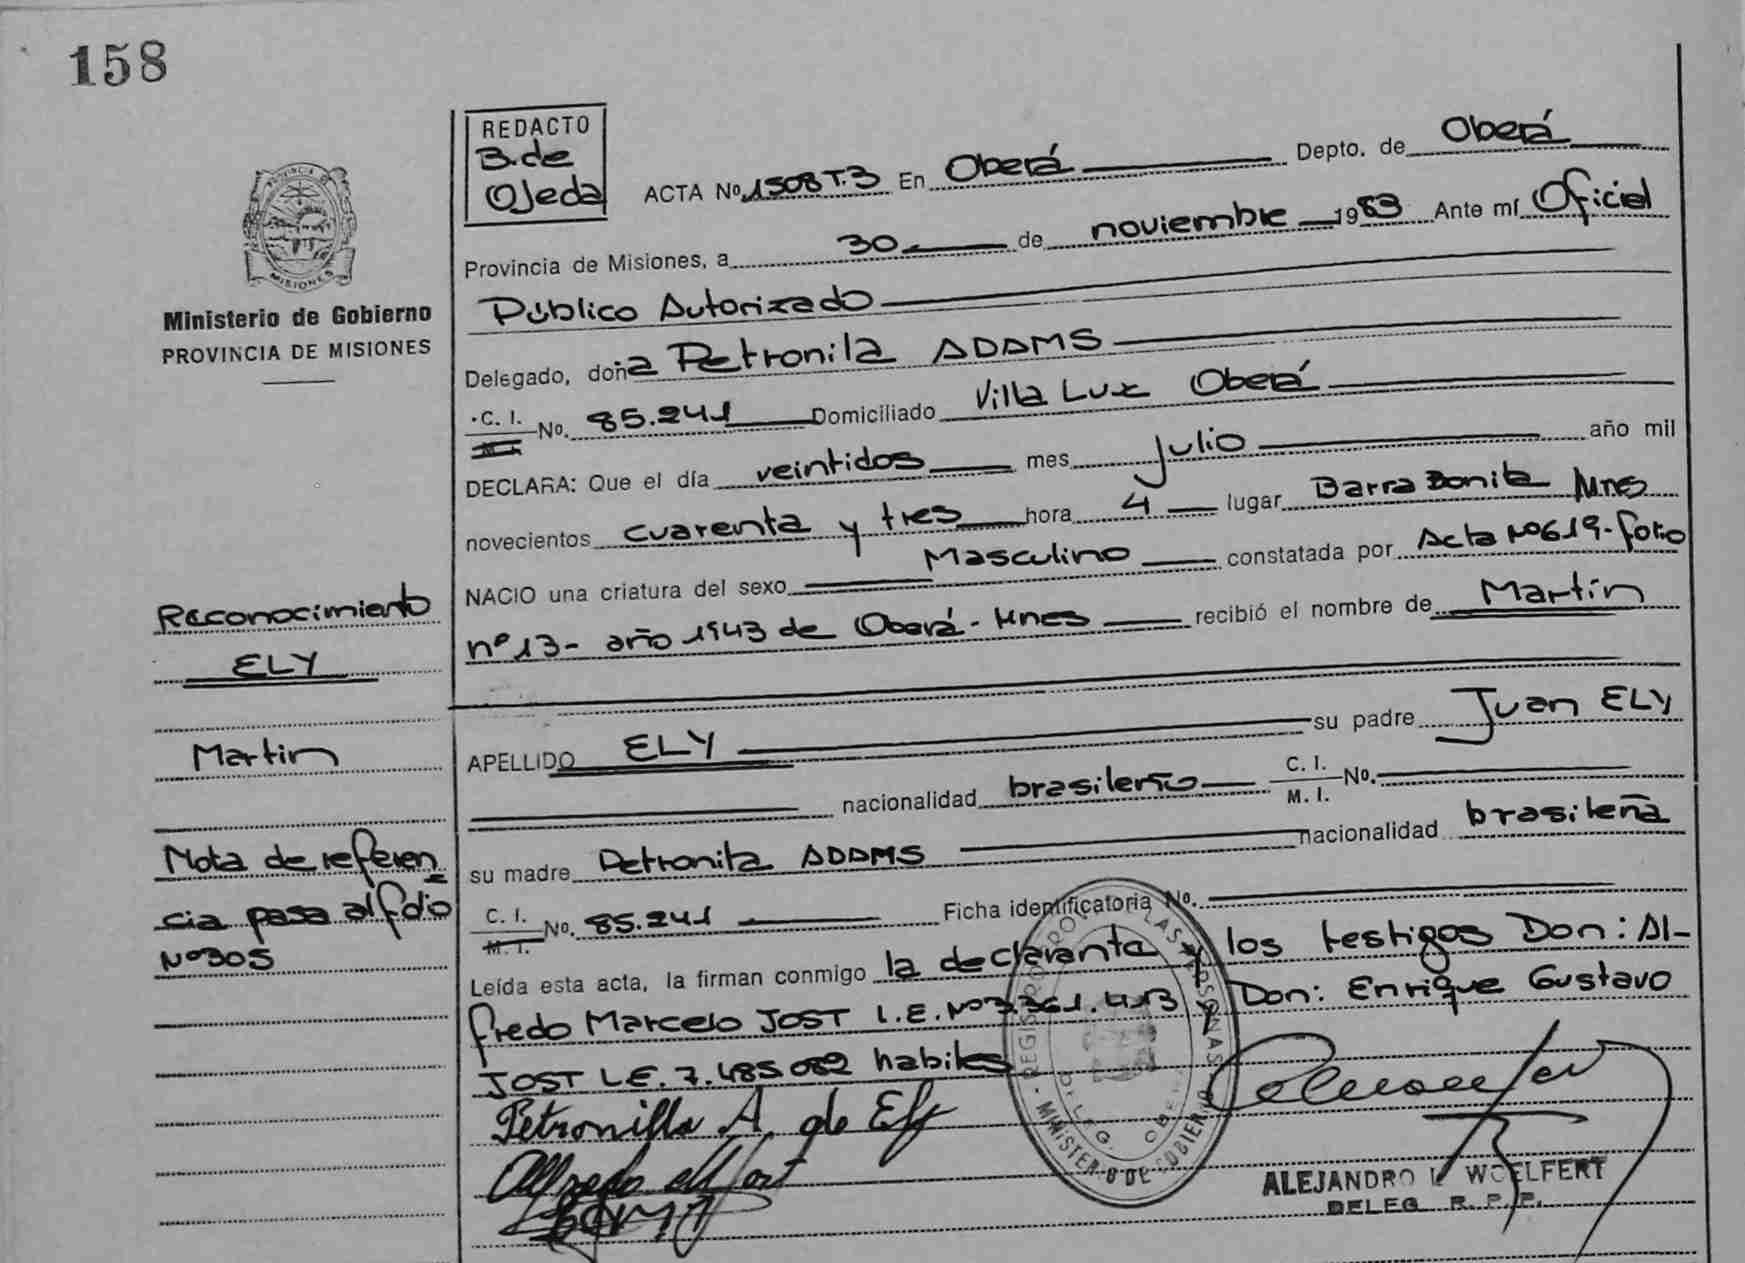 158
REDACTO
B. de
Ojeda
PROVINCIA DE
MISIONES
Ministerio de Gobierno
PROVINCIA DE MISIONES
ACTA Nº 1508 T.3 En Oberá Depto. de Oberá
Provincia de Misiones, a 30 de noviembre 1983 Ante mí Oficial
Público Autorizado
Delegado, doña Petronila ADDMS
C. I. M. I. No. 85.241 Domiciliado Villa Lux Oberá
DECLARA: Que el día veintidos mes Julio año mil
novecientos cuarenta y tres hora 4 lugar Barra Bonita Mnes
NACIO una criatura del sexo Masculino constatada por Acta Nº 619-folio
nº 13- año 1943 de Oberá- Mnes recibió el nombre de Martín
APELLIDO ELY su padre Juan ELY
nacionalidad brasileño C. I. M. I. No.
su madre Petronila ADDMS nacionalidad brasileña
C. I. M. I. No. 85.241 Ficha identificatoria No.
Leída esta acta, la firman conmigo la declaranta y los testigos Don: Al-
fredo Marcelo JOST L.E. Nº 3.361.413 y Don: Enrique Gustavo
JOST L.E. 7.485.082 habiles
Petronilla A. de Ely
REGISTRO PROV. DE LAS PERSONAS
MINISTERIO DE GOBIERNO
DELEG. OBERA
ALEJANDRO WOELFERT
DELEG. R. P. P.
Reconocimiento
ELY
Martin
Nota de referen
cia pasa al fdio
Nº 305